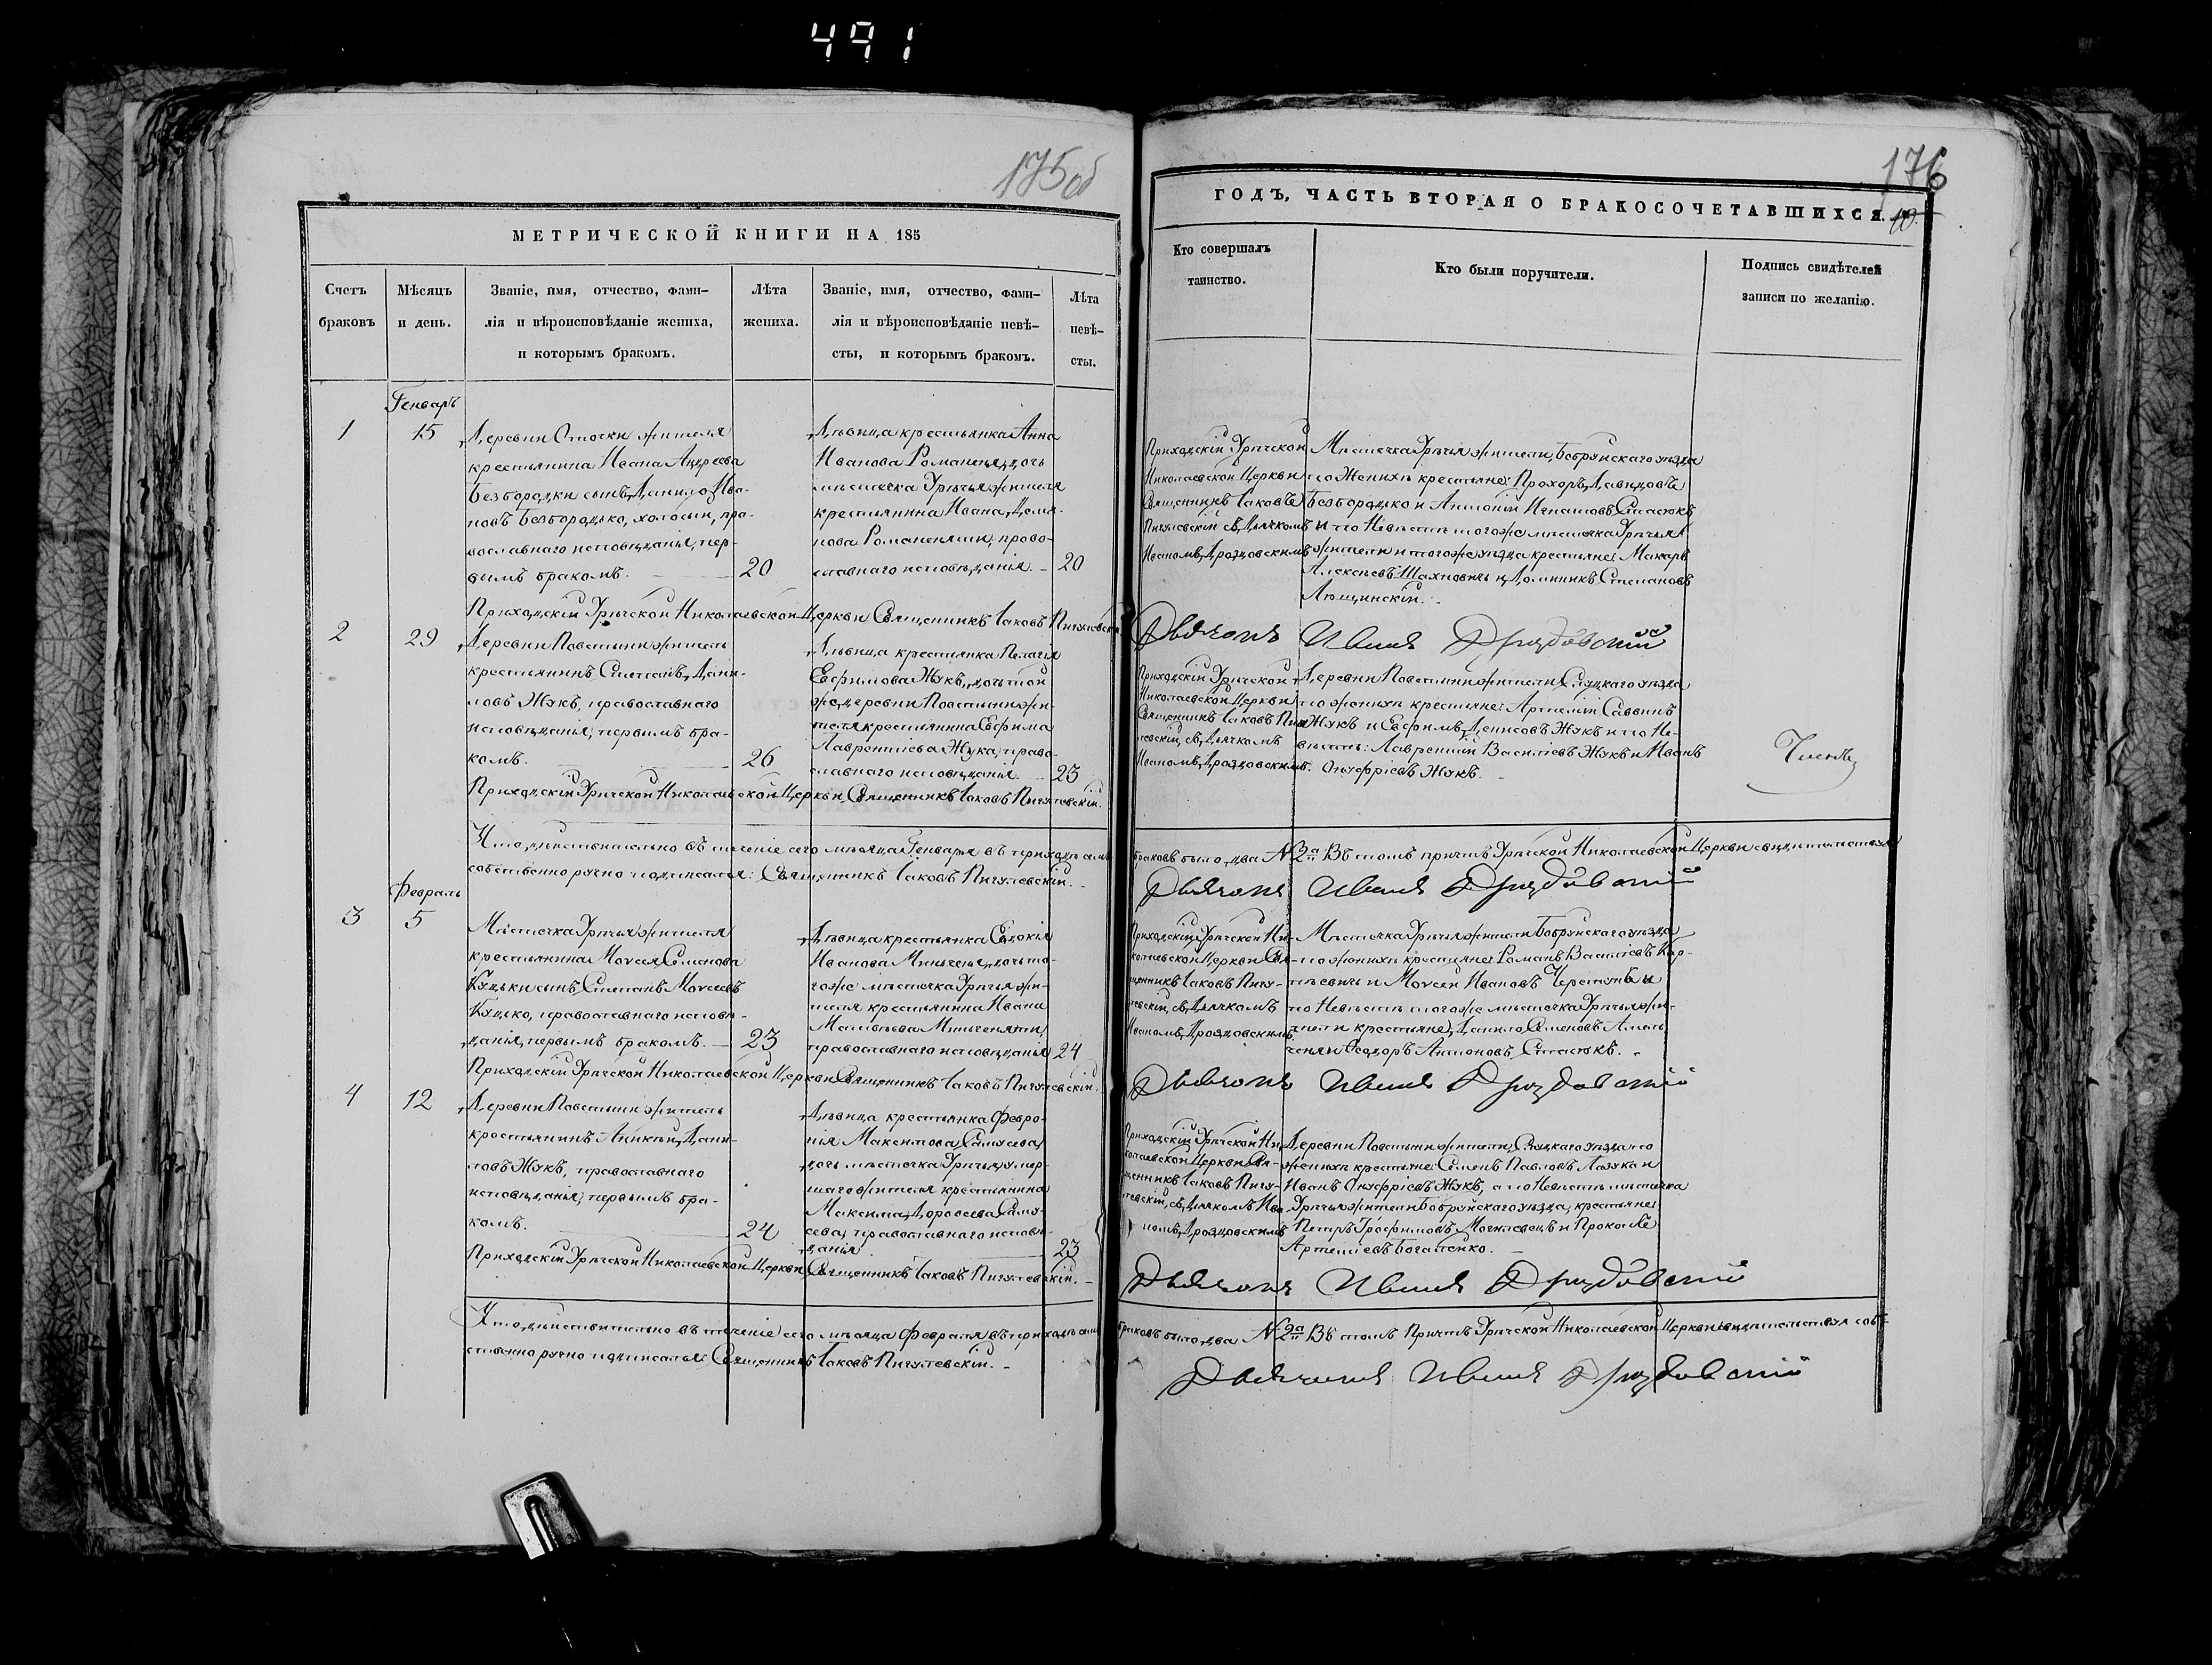 491
175об
МЕТРИЧЕСКОЙ КНИГИ НА 185
Счетъ браковъ
Мѣсяцъ и день.
Званіе, имя, отчество, фами-
лія и вѣроисповѣданіе жениха,
и которымъ бракомъ.
Лѣта жениха.
Званіе, имя, отчество, фами-
лія и вѣроисповѣданіе невѣ-
сты, и которымъ бракомъ.
Лѣта невѣ-
сты.
Генварь
1
15
Деревни Стоски жителя
крестьянина Ивана Андреева
Безбородки сынъ Данило Ива-
новъ Безбородько, холостый, пра-
вославнаго исповѣданія, пер-
вымъ бракомъ.
20
Дѣвица крестьянка Анна
Иванова Романеня, дочь
мѣстечка Урѣчья жителя
крестьянина Ивана Деме-
нова Романеняти, право-
славнаго исповѣданія.
20
Приходскій Урѣчской Николаевской Церкви Священникъ Іаковъ Пигулевскій.
2
29
Деревни Повстыни житель
крестьянинъ Степанъ Дани-
ловъ Жукъ, православнаго
исповѣданія, первымъ бра-
комъ.
26
Дѣвица крестьянка Пелагія
Евфимова Жукъ, дочь той
же деревни Повстыни жи-
теля крестьянина Евфима
Лаврентіева Жука, право-
славнаго исповѣданія.
23
Приходскій Урѣчской Николаевской Церкви Священникъ Іаковъ Пигулевскій.
Что дѣйствительно въ теченіе сего мѣсяца Генваря въ приходѣ семъ
собственноручно подписался: Священникъ Іаковъ Пигулевскій.
Февраль
3
5
Мѣстечка Урѣчья жителя
крестьянина Моѵсея Семенова
Буцьки сынъ Степанъ Моѵсеевъ
Буцько, православнаго исповѣ-
данія, первымъ бракомъ.
23
Дѣвица крестьянка Евдокія
Иванова Миньченя, дочь то-
гоже мѣстечка Урѣчья жи-
теля крестьянина Ивана
Матвѣева Миньченяти,
православнаго исповѣданія
24
Приходскій Урѣчской Николаевской Церкви Священникъ Іаковъ Пигулевскій.
4
12
Деревни Повстыни житель
крестьянинъ Аникѣй Дани-
ловъ Жукъ, православнаго
исповѣданія, первымъ бра-
комъ.
24
Дѣвица крестьянка Февро-
нія Максимова Самусева,
дочь мѣстечка Урѣчья умер-
шаго жителя крестьянина
Максима Дороѳеева Саму-
сева, православнаго исповѣ-
данія
23
Приходскій Урѣчской Николаевской Церкви Священникъ Іаковъ Пигулевскій.
Что дѣйствительно въ теченіе сего мѣсяца Февраля въ приходѣ семъ
ственноручно подписался: Священникъ Іаковъ Пигулевскій.
176
ГОДЪ, ЧАСТЬ ВТОРАЯ О БРАКОСОЧЕТАВШИХСЯ.
Кто совершалъ
таинство.
Кто были поручители.
Подпись свидѣтелей
записи по желанію.
Приходскій Урѣчской
Николаевской Церкви
Священникъ Іаковъ
Пигулевскій съ Дьячкомъ
Иваномъ Дроздовскимъ
Мѣстечка Урѣчья жители, Бобруйскаго уѣзда
по Женихѣ крестьяне: Прохоръ Давидовъ
Безбородько и Антоній Игнатовъ Стасюкъ
и по Невѣстѣ тогоже мѣстечка Урѣчья
жители и тогоже уѣзда крестьяне: Макаръ
Алексѣевъ Шахновичъ и Доминикъ Степановъ
Лѣщинскій.
Дьячокъ Иванъ Дроздовскій
Приходскій Урѣчской
Николаевской Церкви
Священникъ Іаковъ Пигу-
левскій, съ Дьячкомъ
Иваномъ Дроздовскимъ.
Деревни Повстыни жители Слуцкаго уѣзда
по женихѣ крестьяне: Артемій Саввинъ
Жукъ и Евфимъ Денисовъ Жукъ и по Не-
вѣстѣ: Лаврентій Василіевъ Жукъ и Иванъ
Онуфріевъ Жукъ.
браковъ было два №2й Въ томъ причтъ Урѣчской Николаевской Церкви свидѣтельствуя
Дьячокъ Иванъ Дроздовскій
Приходскій Урѣчской Ни-
колаевской Церкви Свя-
щенникъ Іаковъ Пигу-
левскій, съ Дьячкомъ
Иваномъ Дроздовскимъ.
Мѣстечка Урѣчья жители Бобруйскаго уѣзда
по женихѣ крестьяне: Романъ Василіевъ Кор-
и Моѵсей Ивановъ и
по Невѣстѣ тогоже мѣстечка Урѣчья жи-
тели крестьяне, Данило Семеновъ
и Ѳеодоръ Антоновъ Стасюкъ.
Дьячокъ Иванъ Дроздовскій
Приходскій Урѣчской Ни-
колаевской Церкви Свя-
щенникъ Іаковъ Пигу-
левскій, съ Дьячкомъ Ива-
номъ Дроздовскимъ
Деревни Повстыни жители, Слуцкаго уѣзда по
женихѣ крестьяне: Семенъ Павловъ Лазука и
Иванъ Онуфріевъ Жукъ, а по Невѣстѣ мѣстечка
Урѣчья жители Бобруйскаго уѣзда, крестьяне:
Петръ Трофимовъ Могилевецъ и Прокопъ
Артеміевъ Богатенко.
Дьячокъ Иванъ Дроздовскій
браковъ было два №2й Въ томъ Причтъ Урѣчской Николаевской Церкви свидѣтельствуя соб-
Дьячокъ Иванъ Дроздовскій